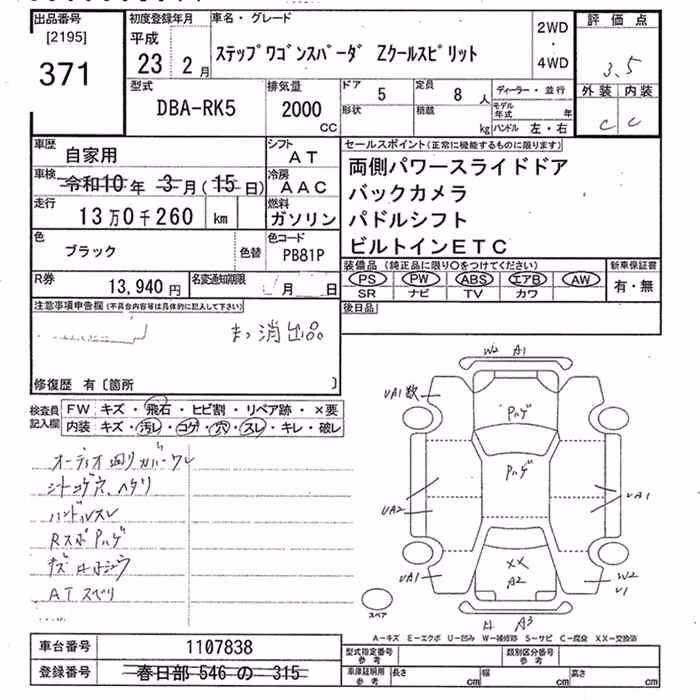 出品番号
[2195]
371
初度登録年月
平成
23 2月
車名・グレード
ステップワゴンスパーダ Zクールスピリット
2WD
・
4WD
評価点
3.5
外装 内装
C C
型式
DBA-RK5
排気量
2000
CC
ドア
5
形状
定員
8 人
積載
kg
ディーラー・並行
モデル年式 年
ハンドル 左・右
車歴
自家用
シフト
AT
車検
令和10年 3月(15日)
冷房
AAC
走行
13万0千260 km
燃料
ガソリン
色
ブラック
色替
色コード
PB81P
R券
13,940円
名変通知期限
月 日
セールスポイント(正常に機能するものに限ります)
両側パワースライドドア
バックカメラ
パドルシフト
ビルトインETC
装備品(純正品に限り○をつけてください)
PS PW ABS エアB AW
SR ナビ TV カワ
新車保証書
有・無
後日品
注意事項申告欄(不具合内容等は具体的に記入して下さい)
消出品
修復歴 有〔箇所 〕
検査員記入欄
FW キズ・飛石・ヒビ割・リペア跡・×要
内装 キズ・汚レ・コゲ・穴・スレ・キレ・破レ
オーディオ廻りカバーワレ
シートコゲ穴、ヘタリ
ハンドルスレ
RスポPハゲ
ATスベリ
W2 A1
UA1 数
Pハゲ
Pハゲ
UA2
UA1
UA1
XX
A2
W2
U1
A3
スペア
A−キズ E−エクボ U−凹み W−補修跡 S−サビ C−腐食 XX−交換済
車台番号
1107838
登録番号
春日部 546 の 315
型式指定番号
参考
類別区分番号
参考
車庫証明用
参考
長さ cm
幅 cm
高さ cm